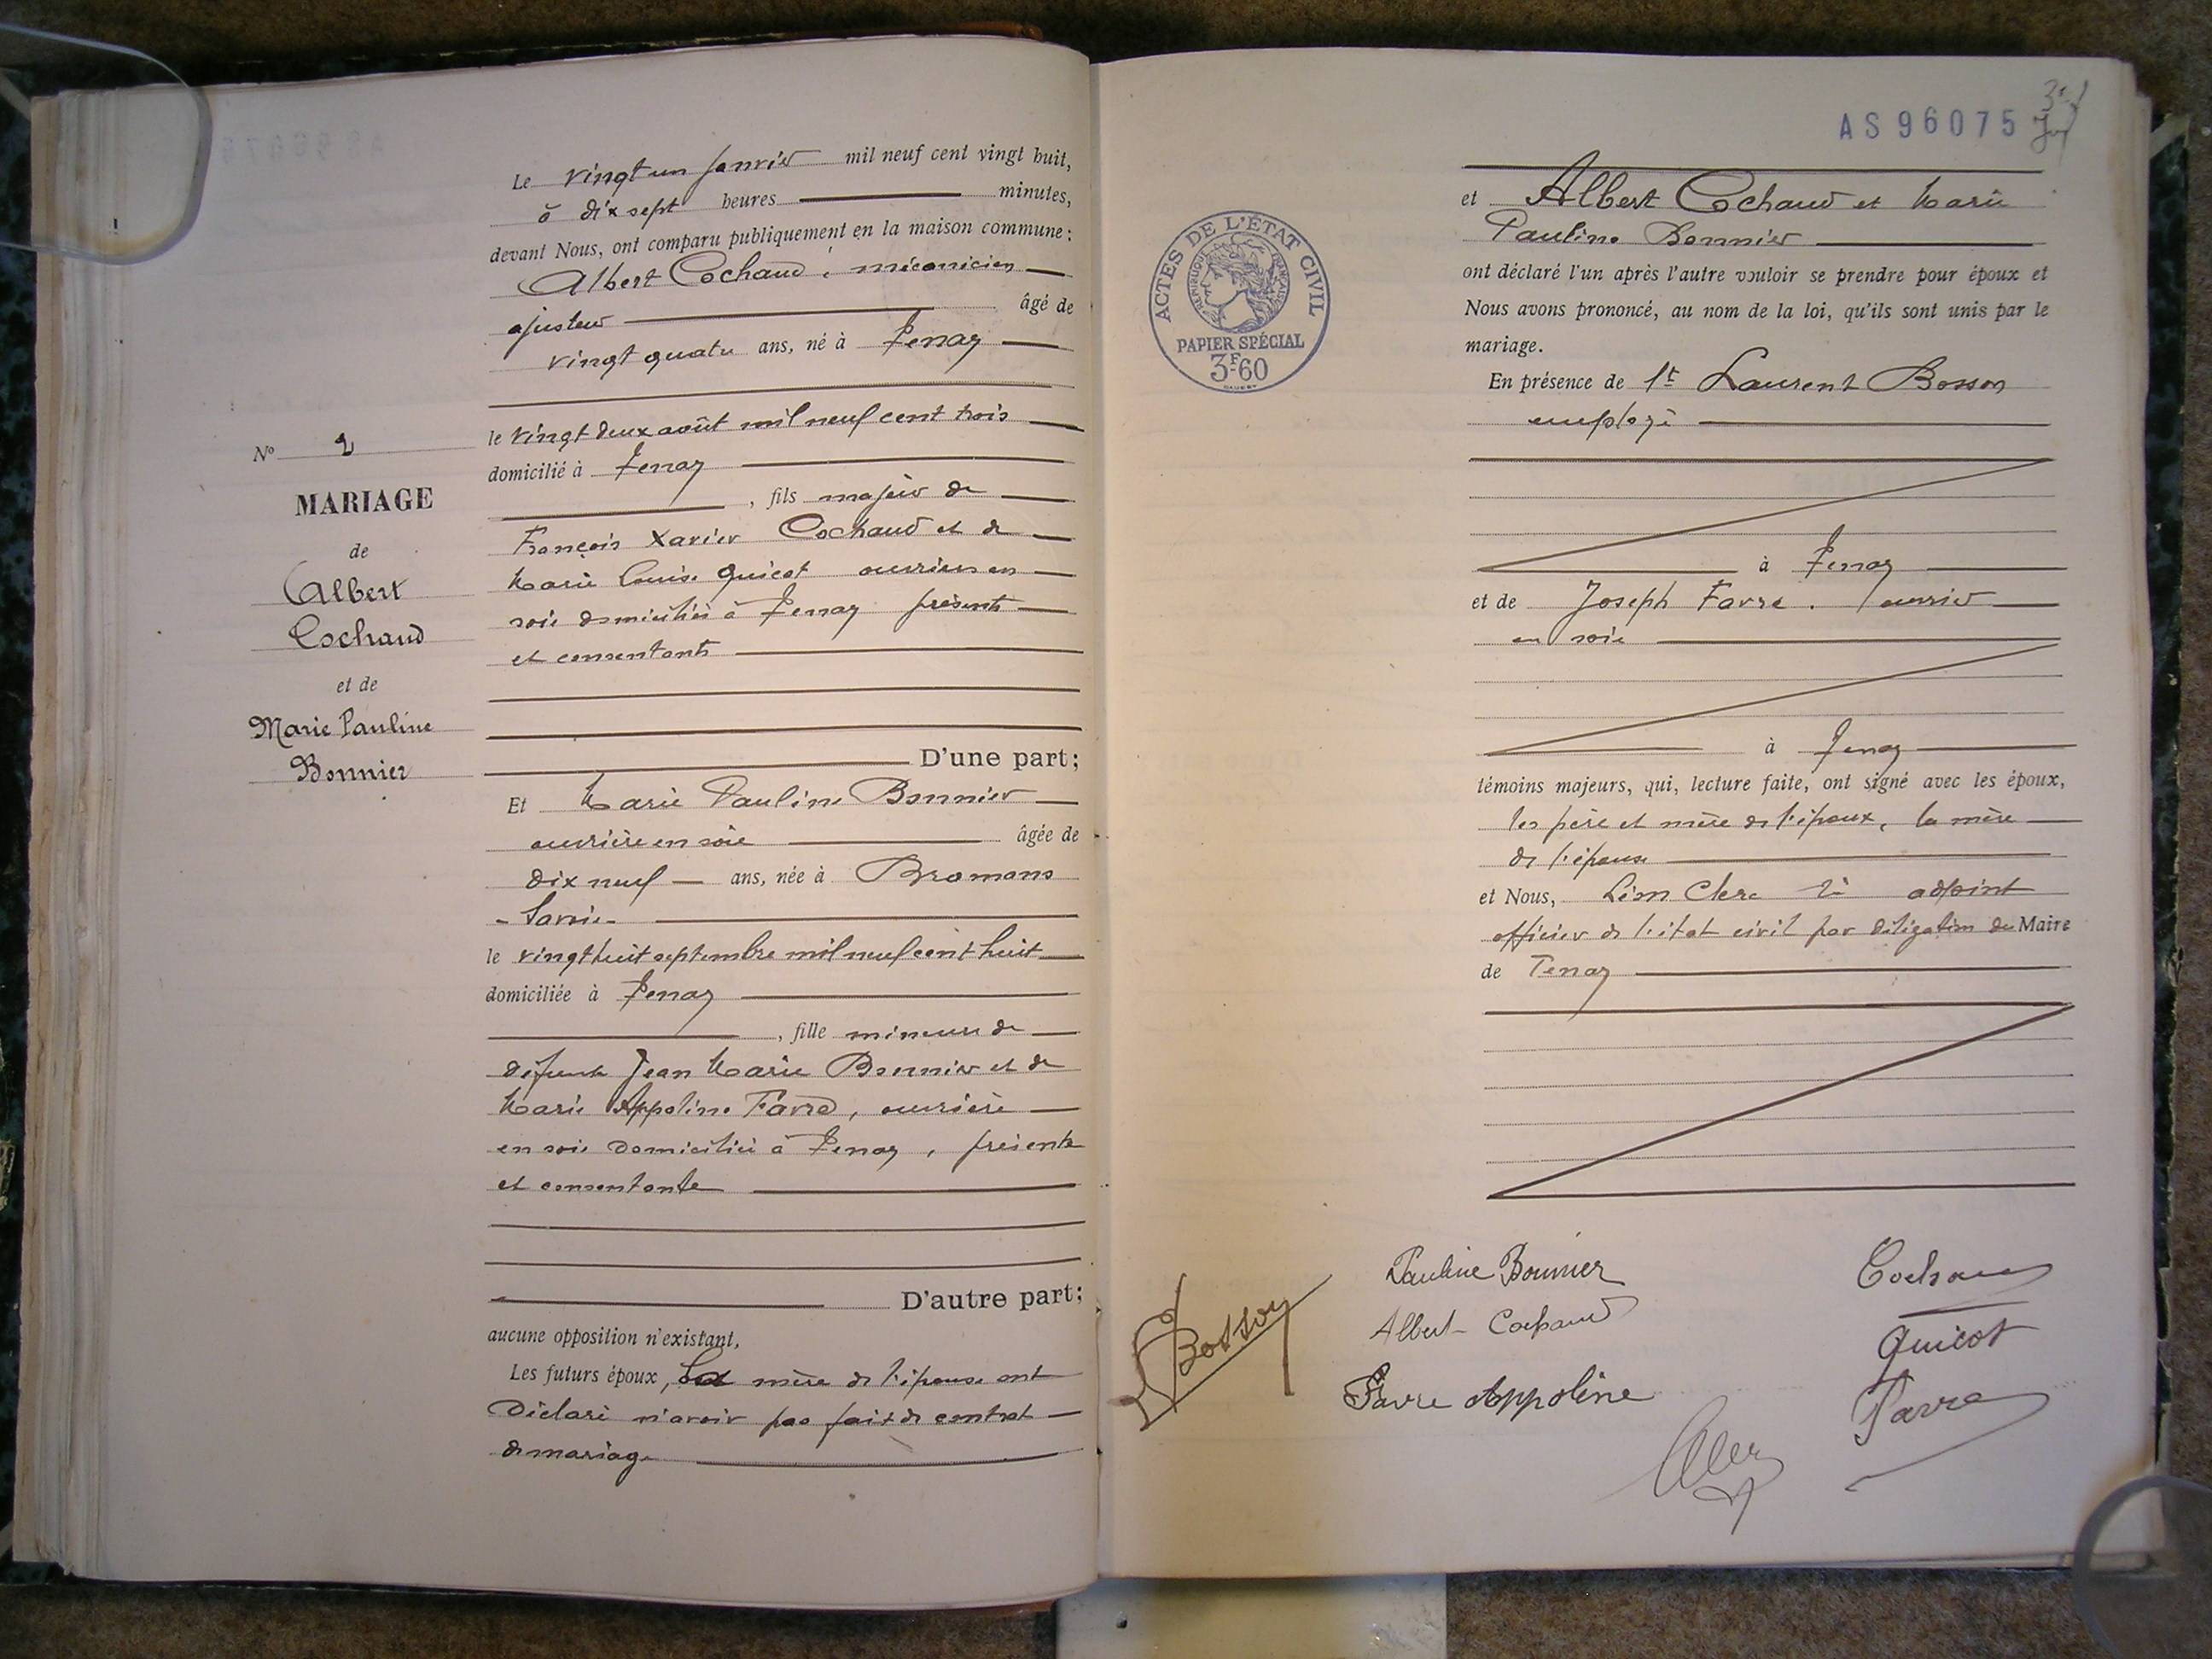 Le vingt un janvier mil neuf cent vingt huit,
à dix sept heures minutes,
devant Nous, ont comparu publiquement en la maison commune :
Albert Cochaud, mécanicien
ajusteur âgé de
vingt quatre ans, né à Tenay
le vingt deux août mil neuf cent trois
domicilié à Tenay
, fils majeur de
François Xavier Cochaud et de
Marie Louise Quicot ouvriers en
soie domiciliés à Tenay présents
et consentants
D'une part;
Et Marie Pauline Bonnier
ouvrière en soie âgée de
dix neuf ans, née à Bramans
- Savoie -
le vingt huit septembre mil neuf cent huit
domiciliée à Tenay
, fille mineure de
défunt Jean Marie Bonnier et de
Marie Appoline Favre, ouvrière
en soie domiciliée à Tenay, présente
et consentante
D'autre part;
aucune opposition n'existant,
Les futurs époux, la mère de l'épouse ont
déclaré n'avoir pas fait de contrat
de mariage
No 2
MARIAGE
de
Albert
Cochaud
et de
Marie Pauline
Bonnier
AS 96075
ACTES DE L'ÉTAT CIVIL
RÉPUBLIQUE FRANÇAISE
PAPIER SPÉCIAL
3F60
et Albert Cochaud et Marie
Pauline Bonnier
ont déclaré l'un après l'autre vouloir se prendre pour époux et
Nous avons prononcé, au nom de la loi, qu'ils sont unis par le
mariage.
En présence de 1t Laurent Bosson
employé
à Tenay
et de Joseph Favre. ouvrier
en soie
à Tenay
témoins majeurs, qui, lecture faite, ont signé avec les époux,
les père et mère de l'époux, la mère
de l'épouse
et Nous, Léon Clerc adjoint
officier de l'état civil par délégation du Maire
de Tenay
Pauline Bonnier
Cochaud
Albert Cochaud
Bosson
Quicot
Favre Appoline
Favre